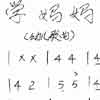 学妈妈
(幼儿歌曲)
| X X | 4 4 |
| 4 2 | 5 5 |